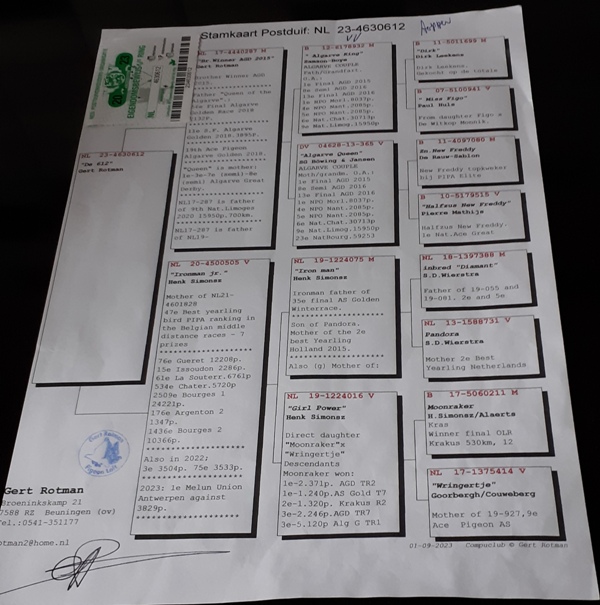 Stamkaart Postduif: NL 23-4630612
NL 23-4630612
"De 612"
Gert Rotman
NL 17-4440287 M
"Dr. Winner AGD 2015"
Gert Rotman
Brother Winner AGD
Father "Queen of the
Algarve".:
16e Final Algarve
Golden Race 2018
12e S.F. Algarve
Golden 2018.3895p.
19th Ace Pigeon
Algarve Golden 2018.
"Queen" is mother:
1e-3e-7e (semi)-8e
(semi) Algarve Great
Derby.
NL17-287 is father
of 9th Nat.Limoges
2020 15950p.700km.
NL17-287 is father
of NL19-
NL 20-4500505 V
"Ironman jr."
Henk Simonsz
Mother of NL21-
4601828
47e Best yearling
bird PIPA ranking in
the Belgian middle
distance races - 7
prizes
76e Gueret 12208p.
15e Issoudun 2286p.
61e La Souterr.6761p
534e Chater.5720p
2509e Bourges 1
24221p.
176e Argenton 2
1347p.
1436e Bourges 2
10366p.
Also in 2022;
3e 3504p. 75e 3533p.
2023: 1e Melun Union
Antwerpen against
3829p.
B 12-6176932 M
"Algarve Ring"
Samson-Roye
ALGARVE COUPLE
Path/Grandfart.
O.A.:
1e Final AGD 2015
8e Semi AGD 2016
13e Final AGD 2016
1e NPO Morl.8037p.
4e NPO Nant.2085p.
5e NPO Nant.2085p.
6e Nat.Chat.30713p
9e Nat.Limog.15950p
DV 04628-13-365 V
"Algarve Queen"
SG Böwing & Jansen
ALGARVE COUPLE
Moth/grandm. O.A.:
1e Final AGD 2015
8e Semi AGD 2016
13e Final AGD 2016
1e NPO Morl.8037p.
4e NPO Nant.2085p.
5e NPO Nant.2085p.
6e Nat.Chat.30713p
9e Nat.Limog.15950p
23e NatBourg.59253
NL 19-1224075 M
"Iron man"
Henk Simonsz
Ironman father of
35e final AS Golden
Winterrace.
Son of Pandora.
Mother of the 2e
best Yearling
Holland 2015.
Also (g) Mother of:
NL 19-1224016 V
"Girl Power"
Henk Simonsz
Direct daughter
"Moonraker"x
"Wringertje"
Descendants
Moonraker won:
1e-2.371p. AGD TR2
1e-1.240p.AS Gold T7
2e-1.320p. Krakus R2
3e-2.246p.AGD TR7
3e-5.120p Alg G TR1
B 11-5011699 M
"Dirk"
Dirk Leekens
Dirk Leekens.
Gekocht op de totale
B 07-6100941 V
"Miss Figo"
Paul Huls
From daughter Figo x
De Witkop Monnik.
B 11-4097080 M
Eu.New Freddy
De Rauw-Sablon
New Freddy topkweker
bij PIPA Elite
B 10-5179515 V
"Halfzus New Freddy"
Pierre Mathijs
Halfzus New Freddy.
1e Nat.Ace Great
NL 18-1397388 M
Inbred "Diamant"
S.D.Wierstra
Father of 19-055 and
19-081. 2e and 5e
NL 13-1588731 V
Pandora
S.D.Wierstra
Mother 2e Best
Yearling Netherlands
B 17-5060211 M
Moonraker
H.Simonsz/Alaerts
Kras
Winner final OLR
Krakus 530km, 12
NL 17-1375414 V
"Wringertje"
Goorbergh/Couweberg
Mother of 19-927,9e
Ace Pigeon AS
Gert Rotman
Broeninkskamp 21
7588 RZ Beuningen (ov)
Tel.:0541-351177
rotman2@home.nl
01-09-2023 Compuclub © Gert Rotman